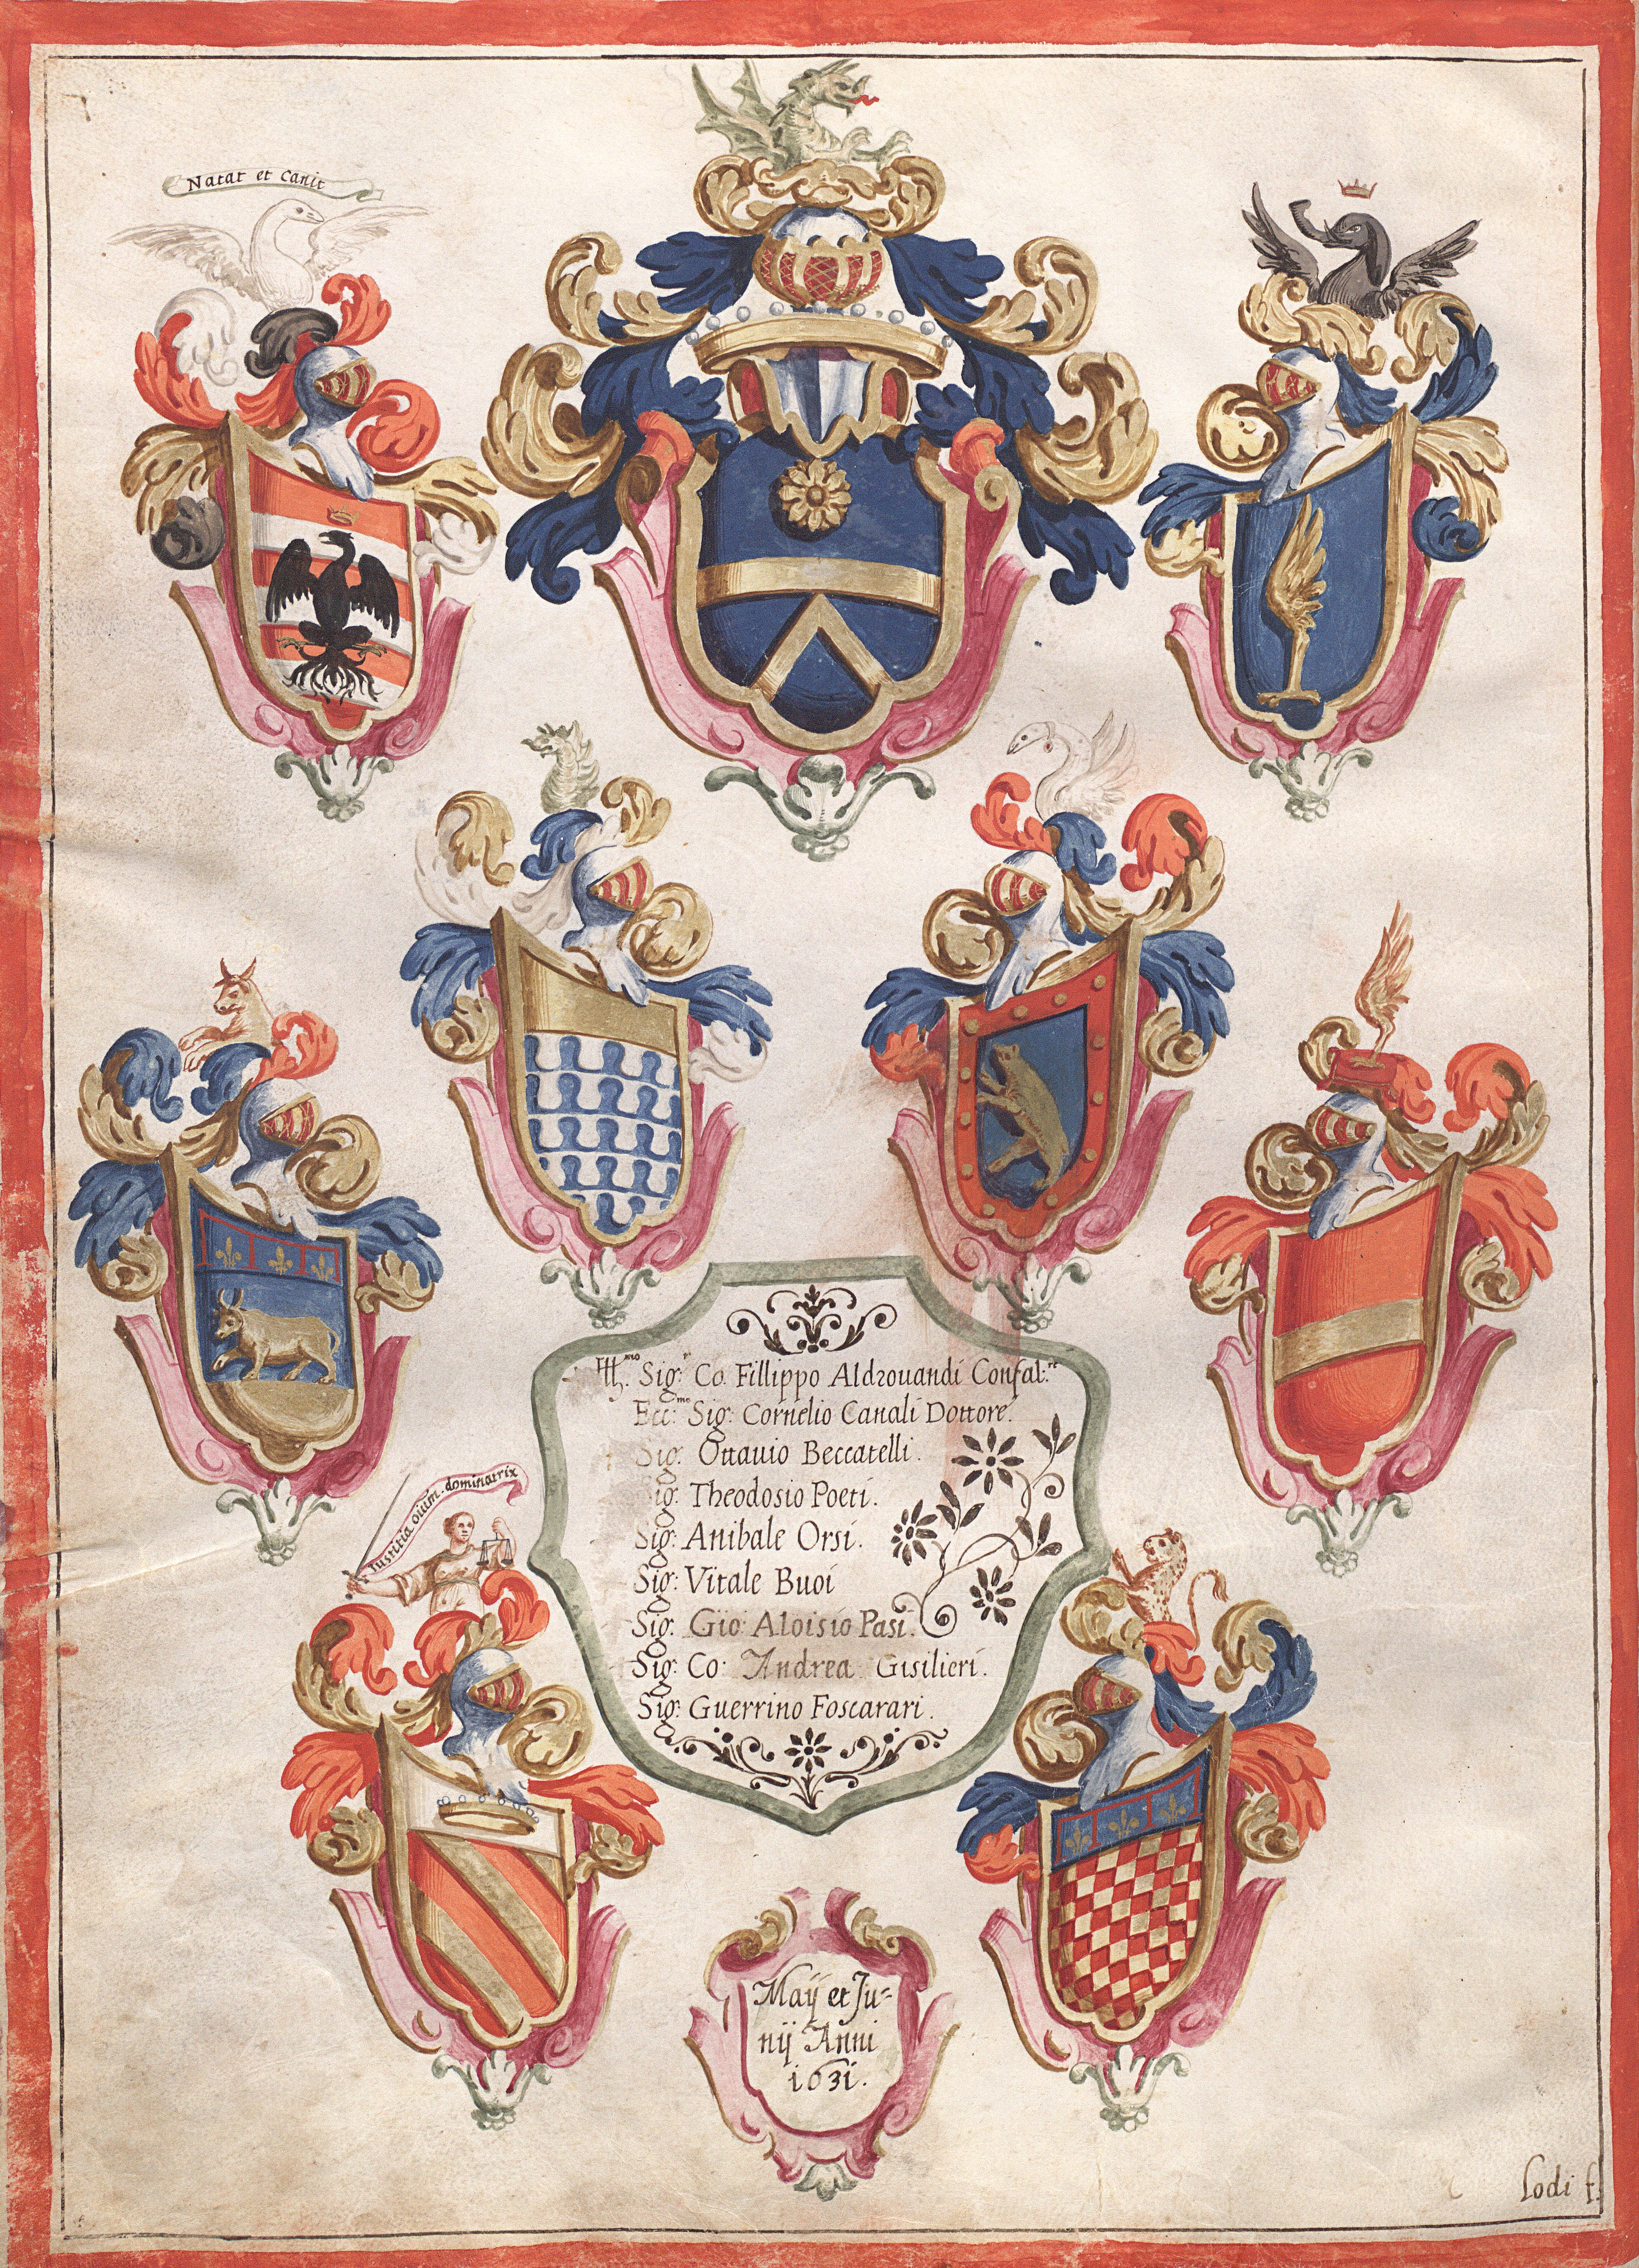 Natat et canit
Iustitia oium. dominatrix
Ill.mo Sig.r Co. Fillippo Aldrouandi Confal:re
Ecc:mo Sig: Cornelio Canali Dottore.
Sig: Ottauio Beccatelli.
Sig: Theodosio Poeti.
Sig: Anibale Orsi.
Sig: Vitale Buoi
Sig: Gio: Aloisio Pasi.
Sig: Co: Andrea Gisilieri.
Sig: Guerrino Foscarari.
Maij et Ju=
nij Anni
1631.
Lodi f.